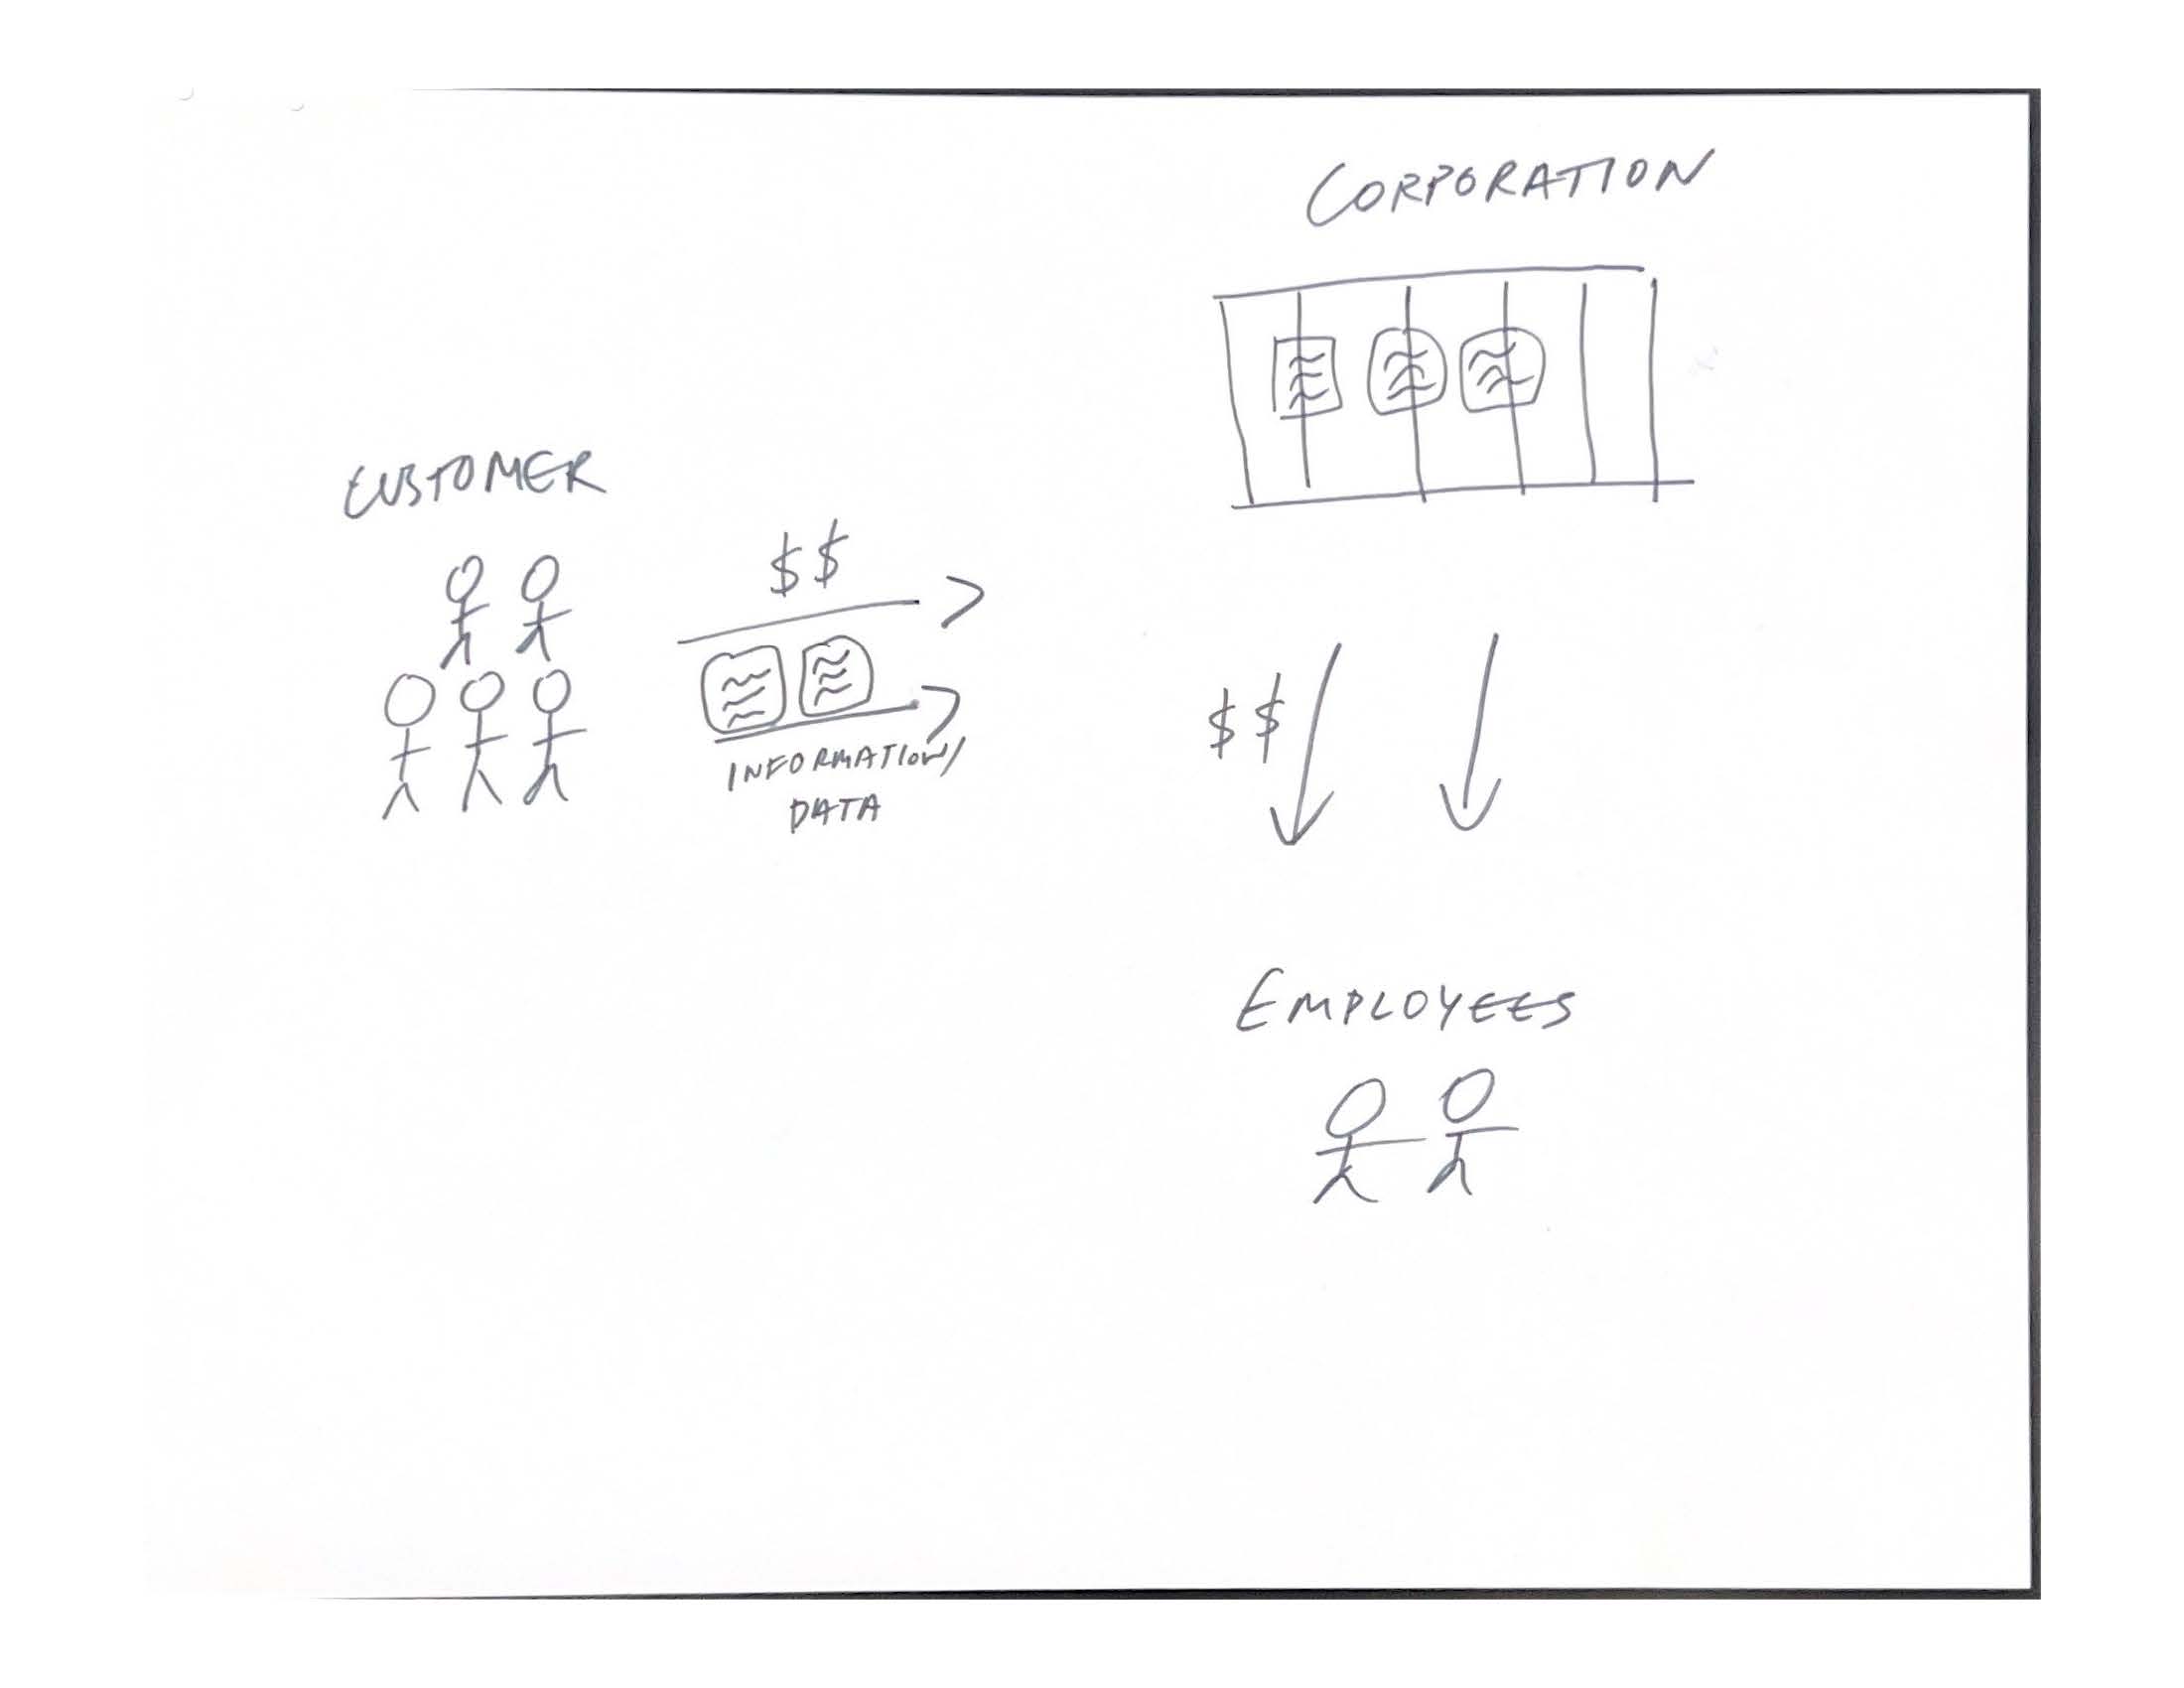 CORPORATION
CUSTOMER
$$
INFORMATION/
DATA
$$
EMPLOYEES